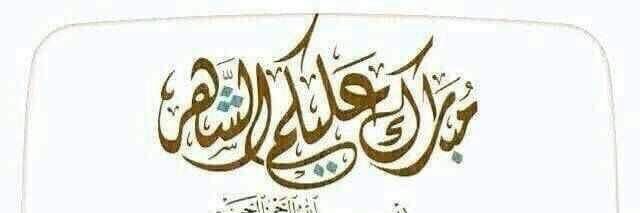 مُبَارَك عَلَيكُم الشَّهر